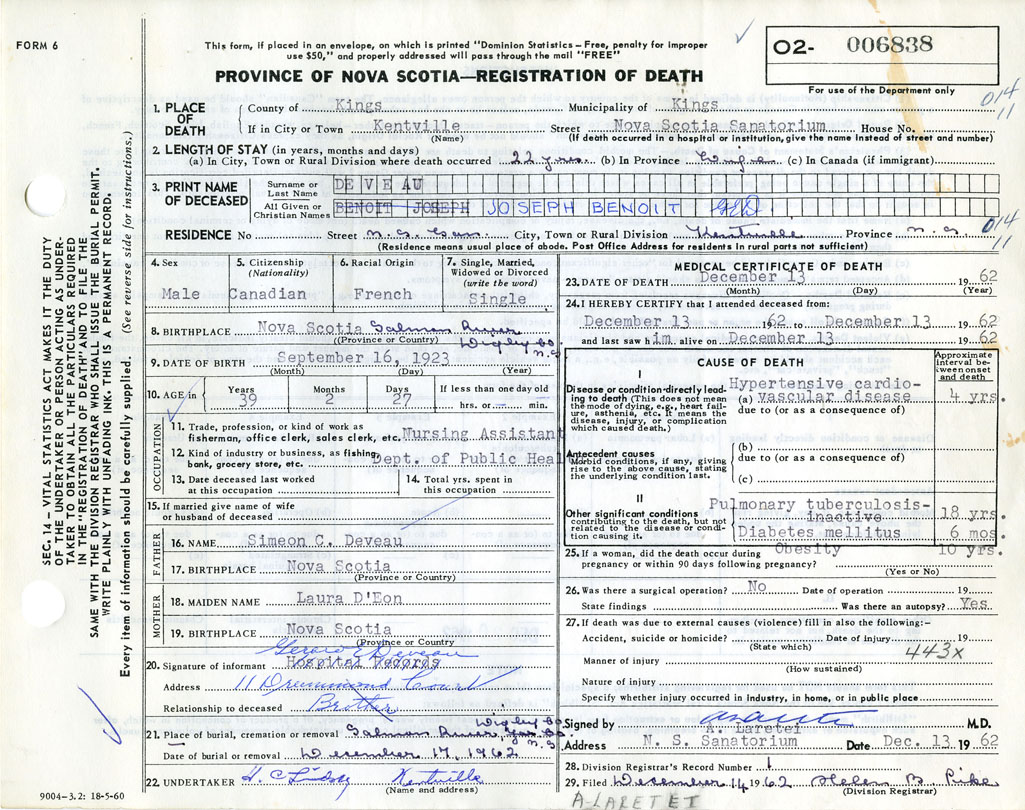 FORM 6
This form, if placed in an envelope, on which is printed "Dominion Statistics – Free, penalty for improper
use $50," and properly addressed will pass through the mail "FREE"
PROVINCE OF NOVA SCOTIA—REGISTRATION OF DEATH
O2- 006838
For use of the Department only
014
11
1. PLACE OF DEATH
County of Kings Municipality of Kings
If in City or Town Kentville Street Nova Scotia Sanatorium House No.
(Name) (If death occurred in a hospital or institution, give the name instead of street and number)
2. LENGTH OF STAY (in years, months and days)
(a) In City, Town or Rural Division where death occurred 22 yrs. (b) In Province Life (c) In Canada (if immigrant)
3. PRINT NAME OF DECEASED
Surname or Last Name DEVEAU
All Given or Christian Names BENOIT JOSEPH JOSEPH BENOIT
RESIDENCE No Street N.S. San City, Town or Rural Division Kentville Province N.S.
014
11
(Residence means usual place of abode. Post Office Address for residents in rural parts not sufficient)
4. Sex Male
5. Citizenship (Nationality) Canadian
6. Racial Origin French
7. Single, Married, Widowed or Divorced (write the word) Single
8. BIRTHPLACE Nova Scotia Salmon River
(Province or Country) Digby Co. N.S.
9. DATE OF BIRTH September 16, 1923
(Month) (Day) (Year)
10. AGE in Years 39 Months 2 Days 27 If less than one day old hrs. or min.
OCCUPATION
11. Trade, profession, or kind of work as
fisherman, office clerk, sales clerk, etc. Nursing Assistant
12. Kind of industry or business, as fishing,
bank, grocery store, etc. Dept. of Public Heal
13. Date deceased last worked at this occupation
14. Total yrs. spent in this occupation
15. If married give name of wife
or husband of deceased
FATHER
16. NAME Simeon C. Deveau
17. BIRTHPLACE Nova Scotia
(Province or Country)
MOTHER
18. MAIDEN NAME Laura D'Eon
19. BIRTHPLACE Nova Scotia
(Province or Country)
Gerard E Deveau
20. Signature of informant Hospital Records
Address 11 Drummond Court
Relationship to deceased Brother
Digby Co.
21. Place of burial, cremation or removal Salmon River, N.S.
Date of burial or removal December 17, 1962
22. UNDERTAKER H. C. Lindsay Kentville
(Name and address)
9004-3.2: 18-5-60
MEDICAL CERTIFICATE OF DEATH
23. DATE OF DEATH December 13 19 62
(Month) (Day) (Year)
24. I HEREBY CERTIFY that I attended deceased from:
December 13 1962 to December 13 19 62
and last saw him alive on December 13 19 62
CAUSE OF DEATH
Approximate interval between onset and death
I
Disease or condition directly leading to death (This does not mean the mode of dying, e.g., heart failure, asthenia, etc. It means the disease, injury, or complication which caused death.)
Hypertensive cardio-
(a) vascular disease 4 yrs.
due to (or as a consequence of)
Antecedent causes
Morbid conditions, if any, giving rise to the above cause, stating the underlying condition last.
(b)
due to (or as a consequence of)
(c)
II
Other significant conditions
contributing to the death, but not related to the disease or condition causing it.
Pulmonary tuberculosis-
inactive 18 yrs.
Diabetes mellitus 6 mos.
Obesity 10 yrs.
25. If a woman, did the death occur during
pregnancy or within 90 days following pregnancy?
(Yes or No)
26. Was there a surgical operation? No Date of operation 19
State findings Was there an autopsy? Yes
27. If death was due to external causes (violence) fill in also the following:-
Accident, suicide or homicide? Date of injury 19
(State which) 443x
Manner of injury
(How sustained)
Nature of injury
Specify whether injury occurred in industry, in home, or in public place
Signed by A. Laretei M.D.
Address N. S. Sanatorium Date Dec. 13 19 62
28. Division Registrar's Record Number 1
29. Filed December 14 1962 Helen B. Pike
(Division Registrar)
A-LARETEI
SEC. 14 – VITAL STATISTICS ACT MAKES IT THE DUTY
OF THE UNDERTAKER OR PERSON ACTING AS UNDER-
TAKER TO OBTAIN ALL THE PARTICULARS REQUIRED
IN THE "REGISTRATION OF DEATH" AND TO FILE THE
SAME WITH THE DIVISION REGISTRAR WHO SHALL ISSUE THE BURIAL PERMIT.
WRITE PLAINLY WITH UNFADING INK. THIS IS A PERMANENT RECORD.
Every item of information should be carefully supplied. (See reverse side for instructions.)